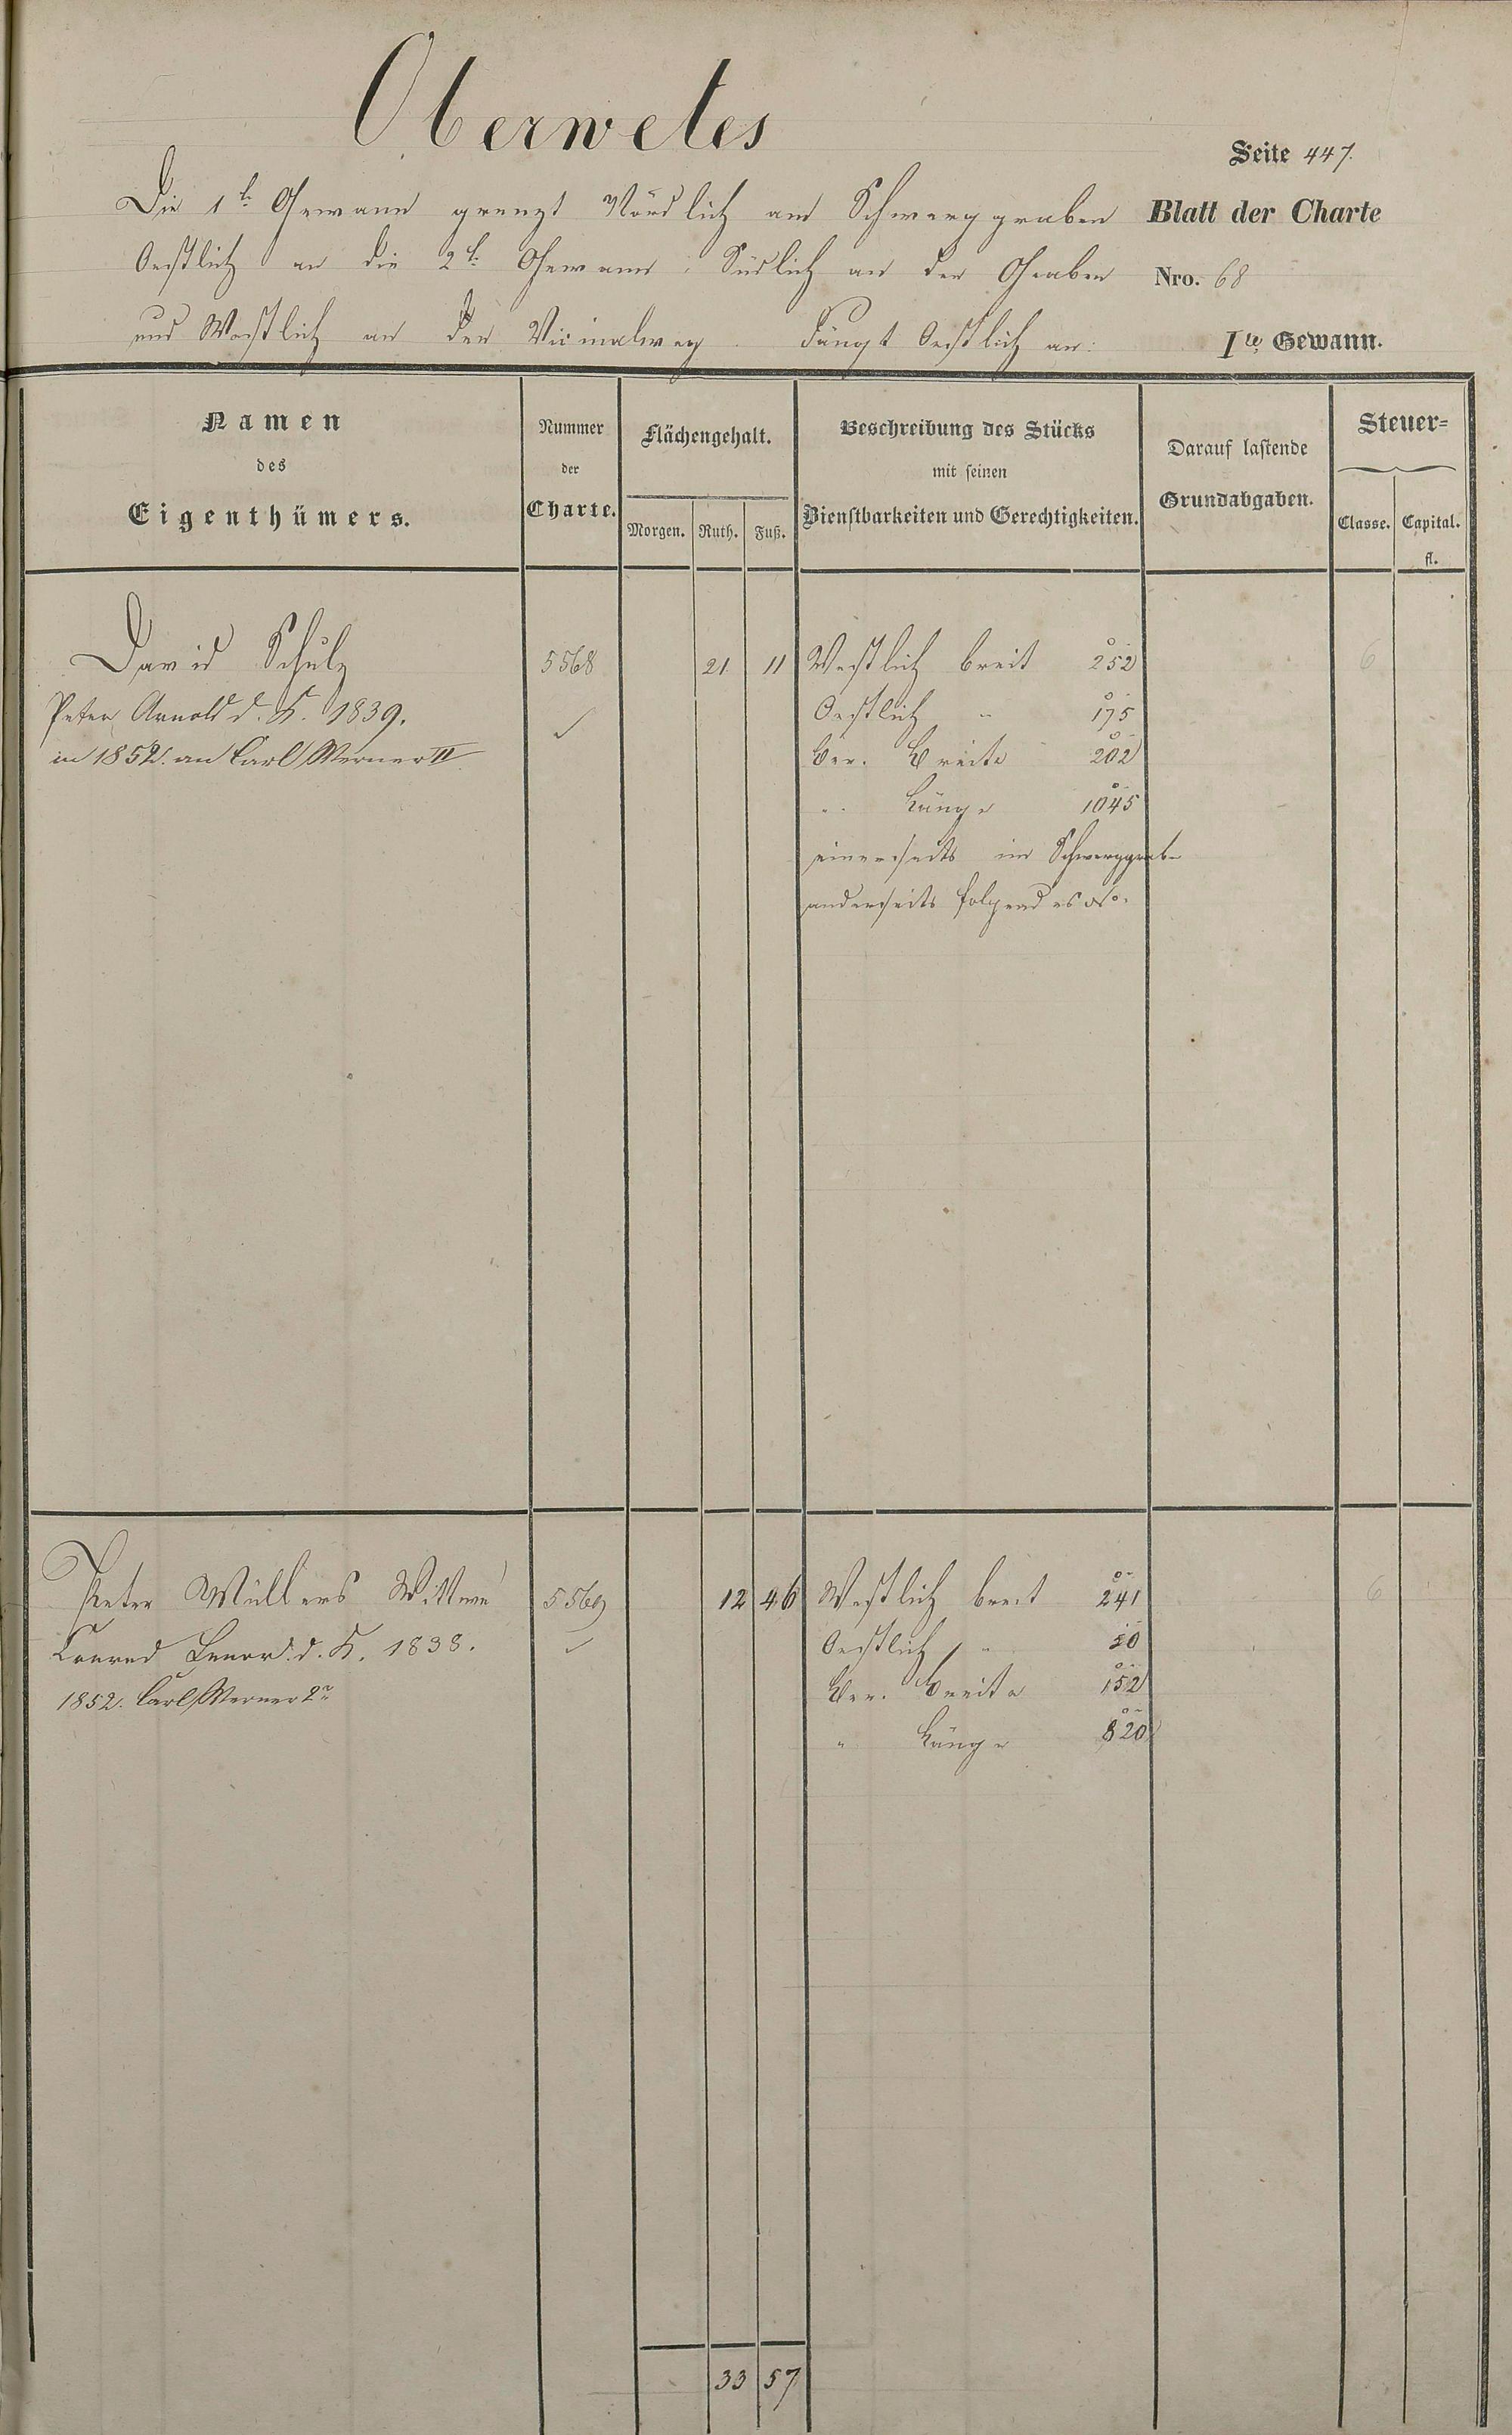 Oberwetes
Seite 447.
Die 1te Gewann grenzt Nördlich am Schwerggraben
Blatt der Charte
Oestlich an die 2te Gewann; Südlich an den Graben
Nro. 68
und Westlich an den Vicinalweg. Fängt Oestlich an:
Ite Gewann.
Namen
des
Eigenthümers.
Nummer
der
Charte.
Flächengehalt.
Morgen. Ruth. Fuß.
Beschreibung des Stücks
mit seinen
Dienstbarkeiten und Gerechtigkeiten.
Darauf lastende
Grundabgaben.
Steuer-
Classe. Capital.
fl.
David Schulz 5568 21 11 Westlich breit 252 6
Peter Arnold d. K. 1839. Oestlich " 175
in 1852. an Carl Werner II Ver. Breite 202
" Länge 1045
einerseits im Schwerggraben
anderseits folgendes No.
Peter Müllers Wittwe 5569 12 46 Westlich breit 241 6
Conrad d. K. 1838. Oestlich " 50
1852. Carl Werner 2r Ver. Breite 152
" Länge 820
33 57